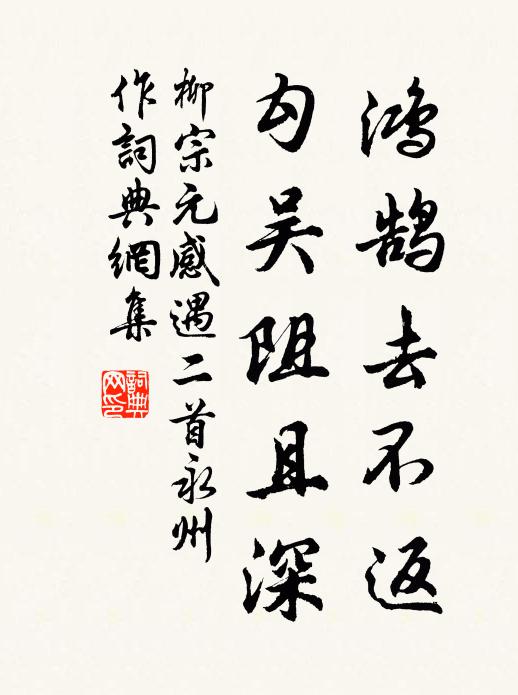 鸿鹄去不返
勾吴阻且深
柳宗元感遇二首永州
作詞典網集
詞典网印